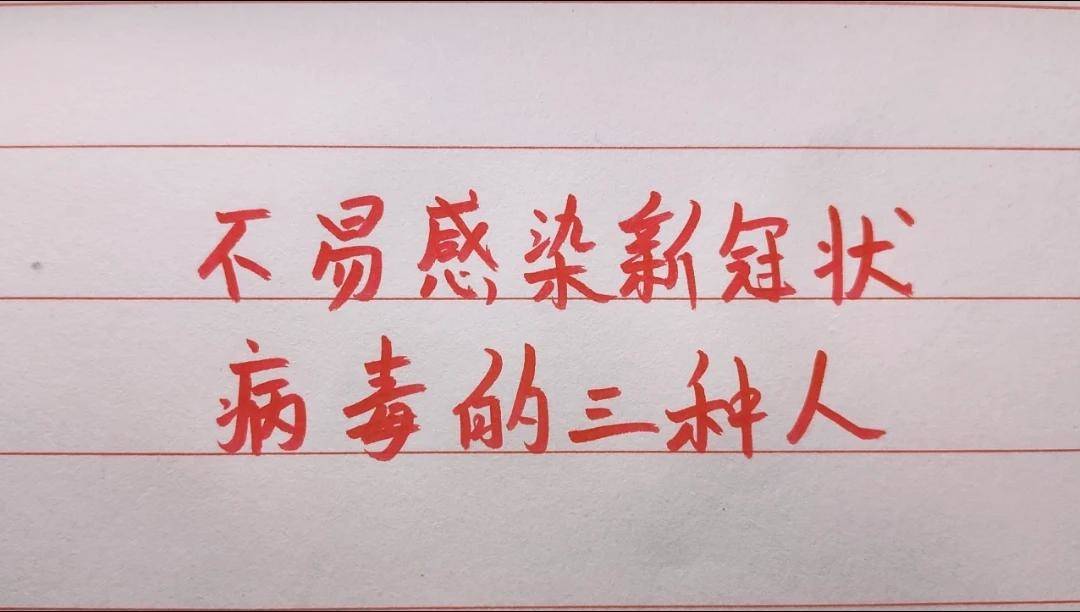 不易感染新冠状
病毒的三种人